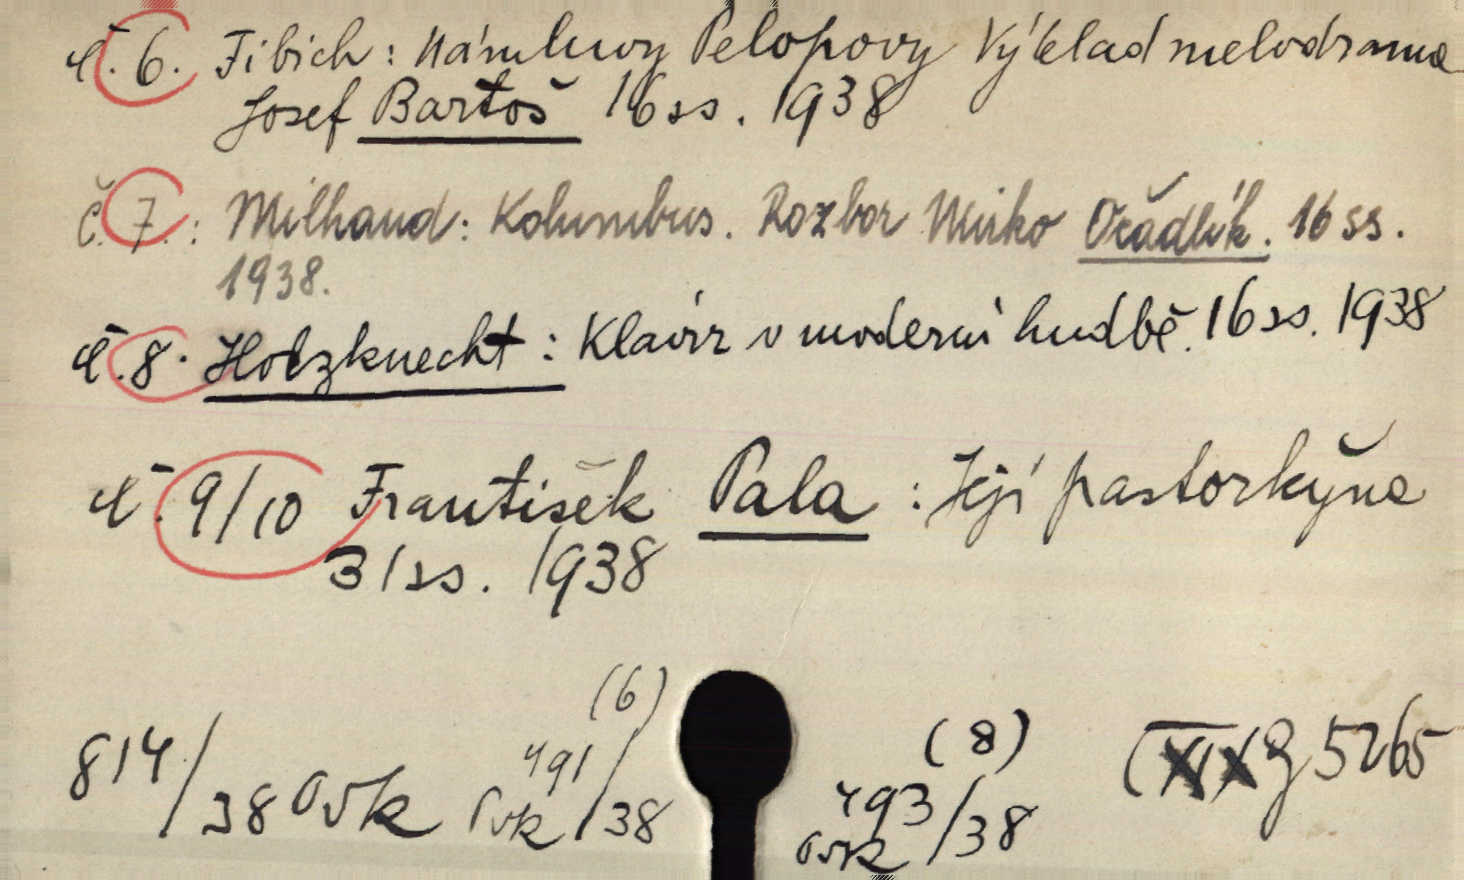 č. 6. Fibich: Námluvy Pelopovy Výklad melodrama
Josef Bartoš 16 ss. 1938
č. 7.: Milhaud: Kolumbus. Rozbor Mirko Očadlík. 16 ss.
1938.
č. 8. Holzknecht: Klavír v moderní hudbě. 16 ss. 1938
č. 9/10 František Pala: Její pastorkyňa
31 ss. 1938
(6) (8)
814/38 491/38 493/38 5265